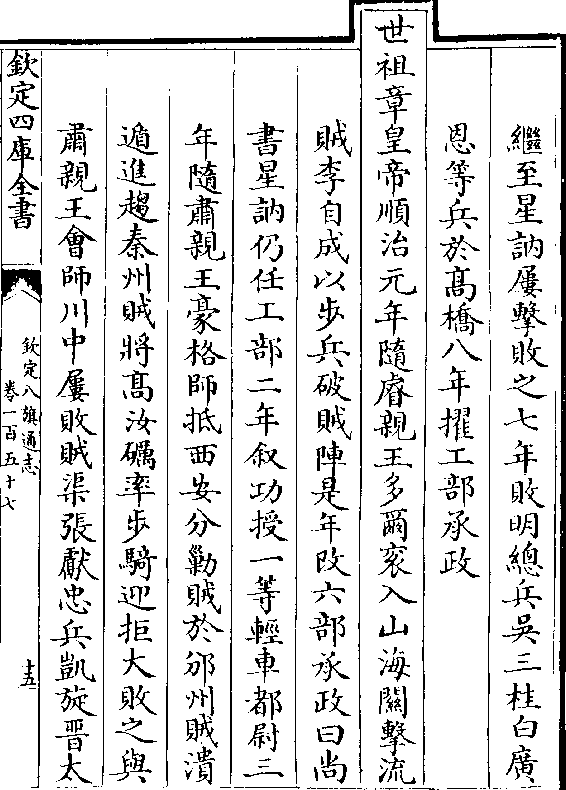 繼至星訥屢擊敗之七年敗明總兵吳三桂白廣
恩等兵於髙橋八年擢工部承政
世祖章皇帝順治元年隨睿親王多爾衮入山海關擊流
賊李自成以歩兵破賊陣是年改六部承政曰尚
書星訥仍任工部二年叙功授一等輕車都尉三
年隨肅親王豪格師抵西安分勦賊於邠州賊潰
遁進趨秦州賊將髙汝礪率歩騎迎拒大敗之與
肅親王會師川中屢敗賊渠張獻忠兵凱旋晋太
欽定四庫全書
欽定八旗通志
卷一百五十七
十五